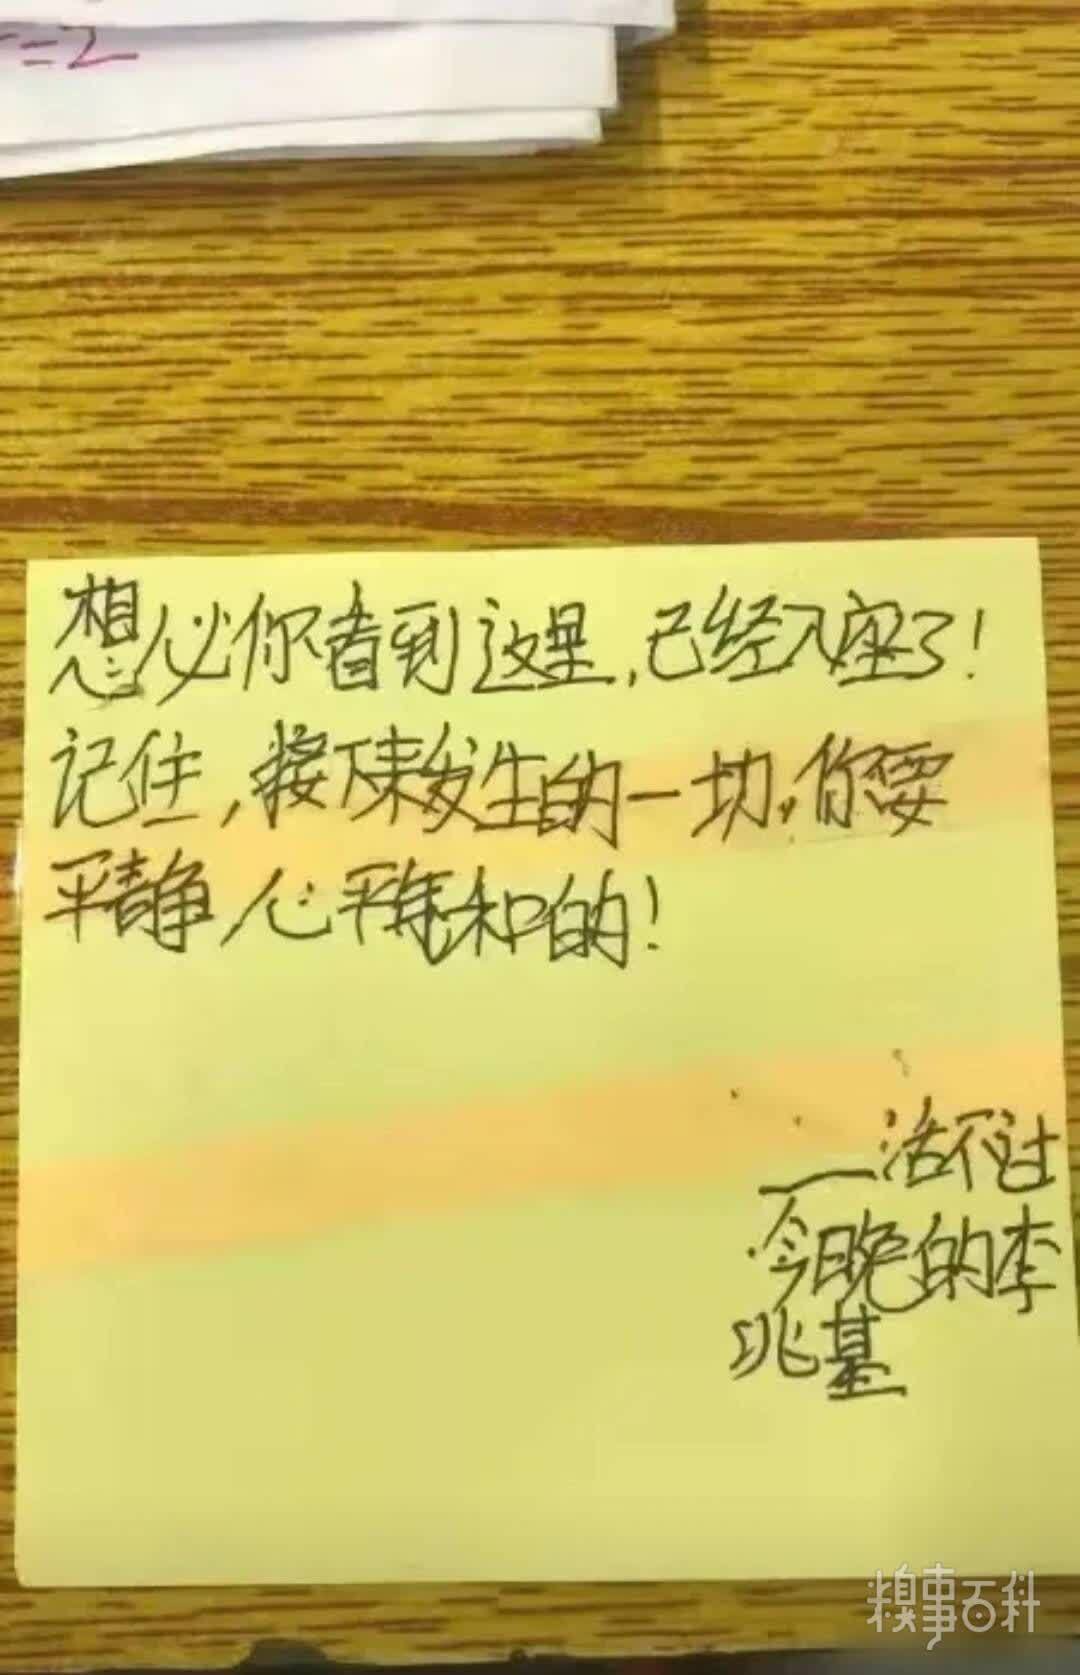 =2
想必你看到这里，已经入座了！
记住，接下来发生的一切，你要
平静，心平气和的！
——活不过
今晚的李
兆基
糗事百科